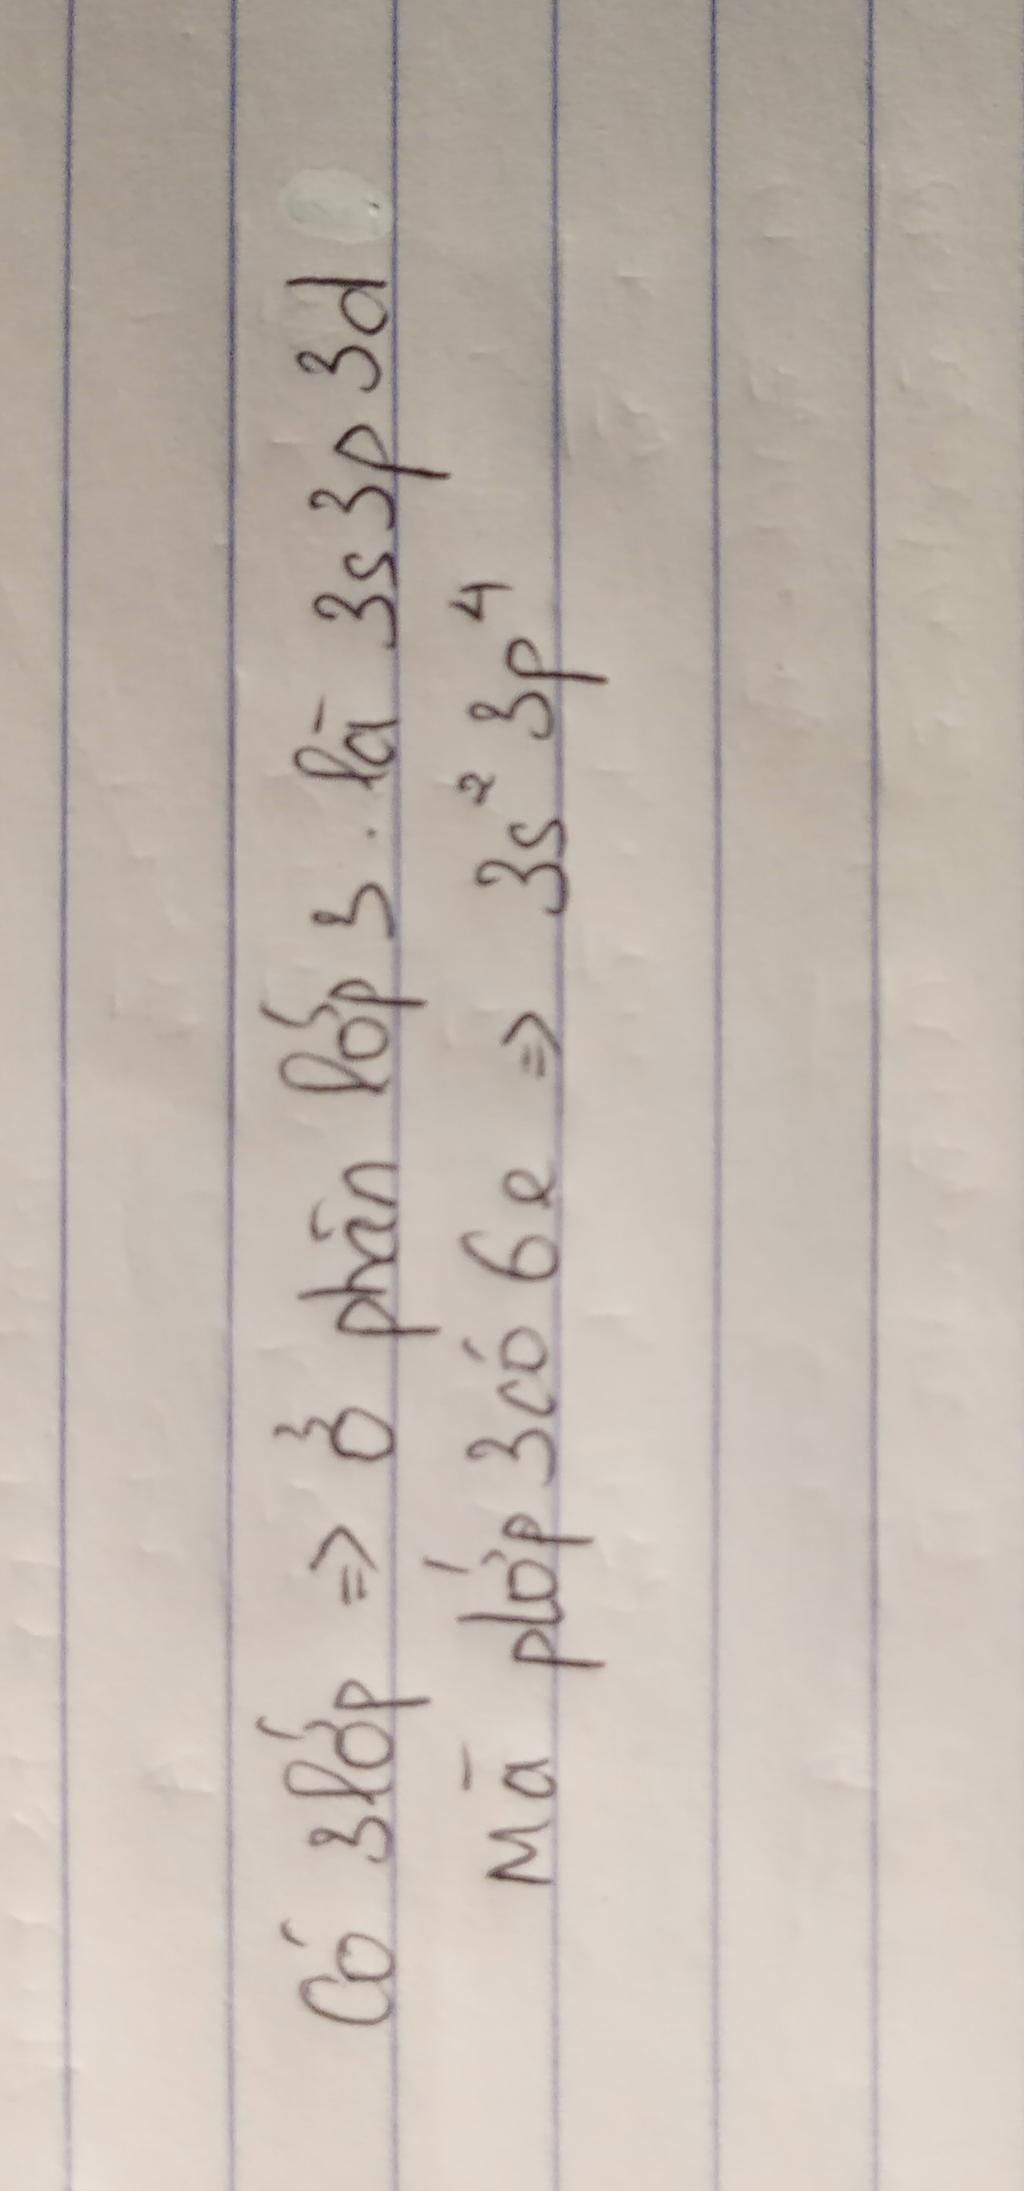 Có 3 lớp => ở phân lớp 3. là 3s 3p 3d
Mà plớp 3 có 6e => 3s² 3p⁴